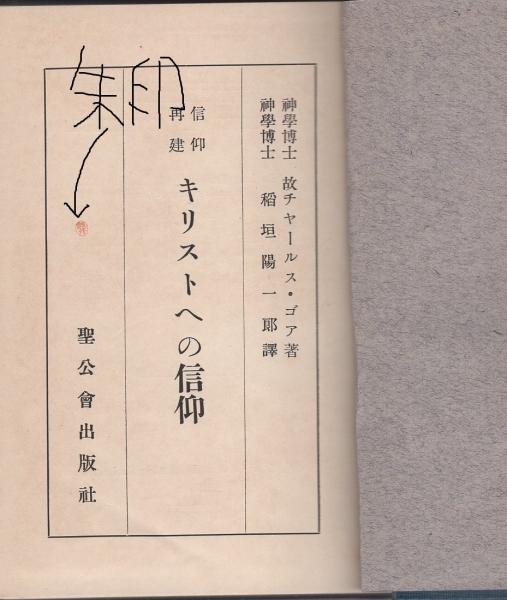 神學博士 故チャールス・ゴア著
神學博士 稻垣陽一郞譯
信仰
再建
キリストへの信仰
聖公會出版社
朱印